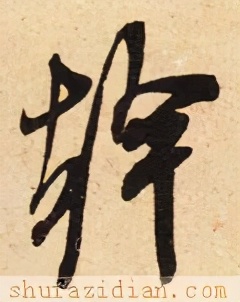 幹
shufazidian.com